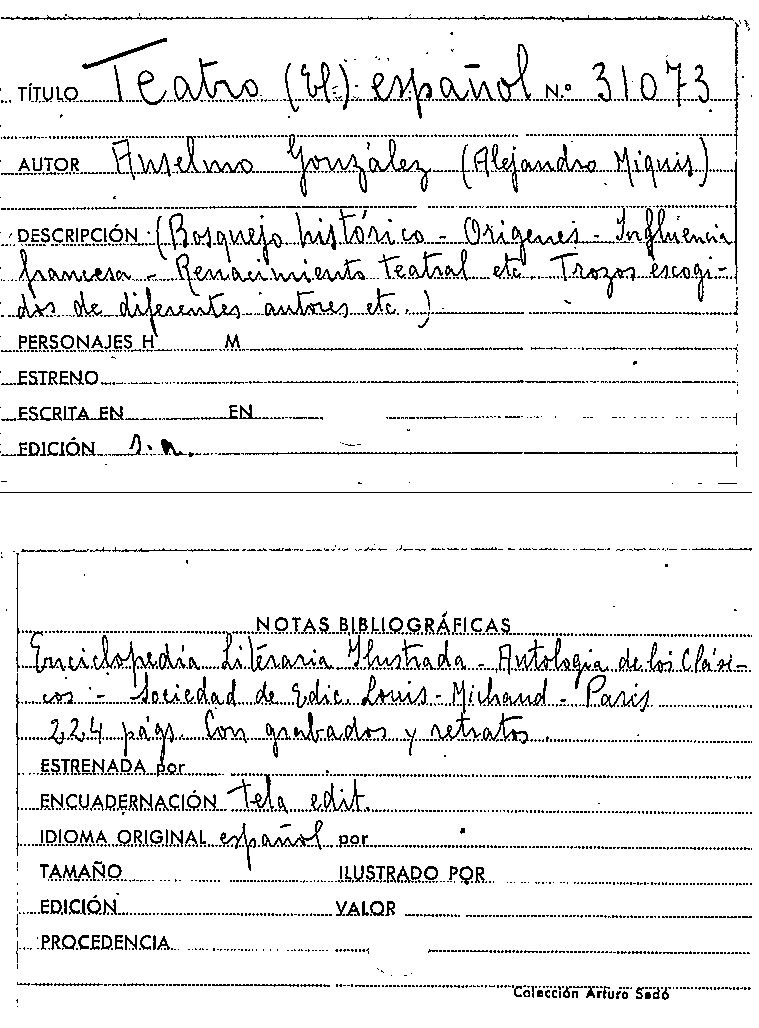 TÍTULO Teatro (El) español N.º 31073
AUTOR Anselmo González (Alejandro Miquis)
DESCRIPCIÓN (Bosquejo histórico - Origenes - Influencia
francesa - Renacimiento teatral etc. Trozos escogi-
dos de diferentes autores etc.)
PERSONAJES H M
ESTRENO
ESCRITA EN EN
EDICIÓN s.a.
NOTAS BIBLIOGRÁFICAS
Enciclopedia Literaria Ilustrada - Antologia de los Clási-
cos - Sociedad de Edic. Louis-Michaud - Paris
224 págs. Con grabados y retratos.
ESTRENADA por
ENCUADERNACIÓN tela edit.
IDIOMA ORIGINAL español por
TAMAÑO ILUSTRADO POR
EDICIÓN VALOR
PROCEDENCIA
Colección Arturo Sedó